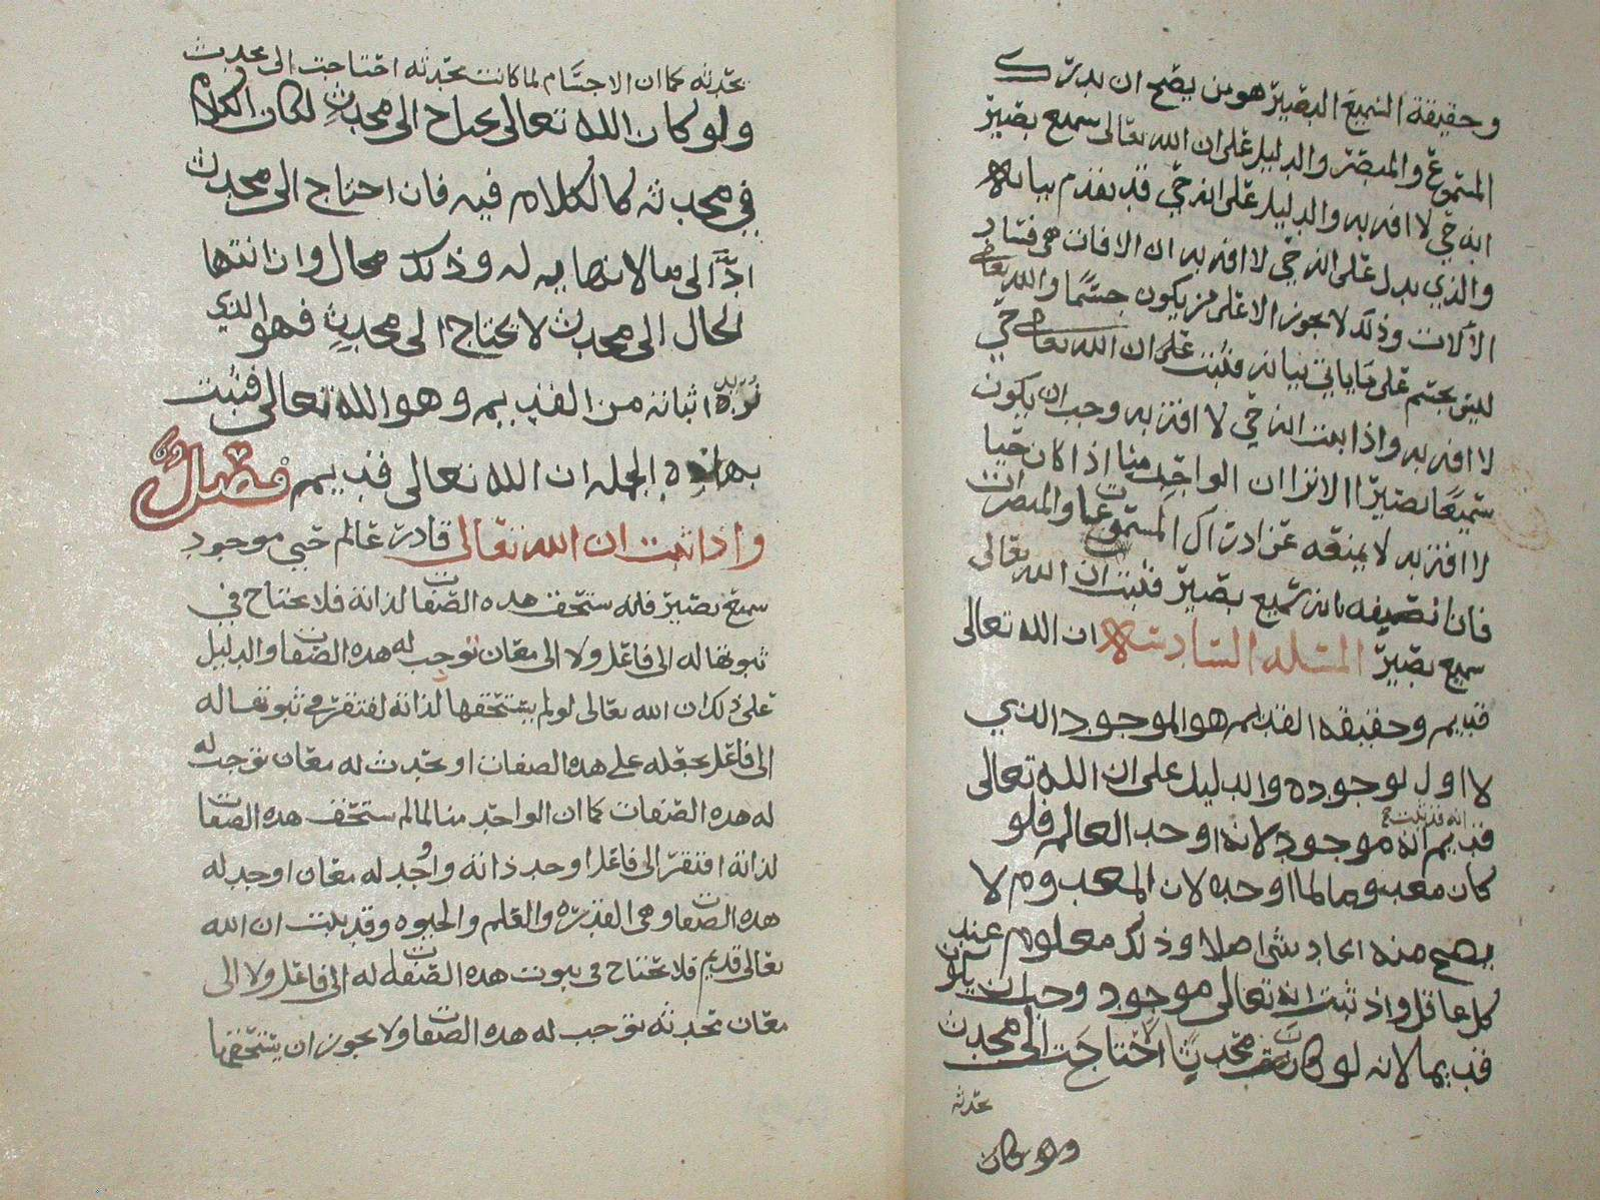 وحقيقة السميع البصير هو من يصح ان يدرك
المسموع والمبصر والدليل على ان الله تعالى سميع بصير
انه حي لا افة به والدليل على انه حي قد تقدم بيانه
والذي يدل على انه حي لا افة به ان الافات هي فساد
الالات وذلك لا يجوز الا على من يكون جسما والله تعالى
ليس بجسم على ما ياتي بيانه فثبت على ان الله تعالى حي
لا افة به واذا ثبت انه حي لا افة به وجب ان يكون
سميعا بصيرا الا ترا ان الواحد منا اذا كان حيا
لا افة به لا يمنعه عن ادراك المسموعات والمبصرات
فانا نصفه بانه سميع بصير فثبت ان الله تعالى
سميع بصير المسئلة السادسة ان الله تعالى
قديم وحقيقة القديم هو الموجود الذي
لا اول لوجوده والدليل على ان الله تعالى
قديم انه قد ثبت انه موجود لانه اوجد العالم فلو
كان معدوما لما اوجده لان المعدوم لا
يصح منه ايجاد شي اصلا وذلك معلوم عند
كل عاقل واذ ثبت انه تعالى موجود وجب ان يكون
قديما لانه لو كان محدثا لاحتاج الى محدث
يحدثه
ولو كان
يحدثه كما ان الاجسام لما كانت محدثه احتاجت الى محدث
ولو كان الله تعالى يحتاج الى محدث لكان الكلام
في محدثه كالكلام فيه فان احتاج الى محدث
ادا الى ما لا نهايه له وذلك محال وان انتها
الحال الى محدث لا يحتاج الى محدث فهو الذي
نريد اثباته من القديم وهو الله تعالى فثبت
بهذه الجملة ان الله تعالى قديم فصل
واذا ثبت ان الله تعالى قادر عالم حي موجود
سميع بصير فانه يستحق هذه الصفات لذاته فلا يحتاج في
ثبوتها له الى فاعل ولا الى معان توجب له هذه الصفات والدليل
على ذلك ان الله تعالى لو لم يستحقها لذاته لافتقر في ثبوتها له
الى فاعل يجعله على هذه الصفات او تحدث له معان توجب له
له هذه الصفات كما ان الواحد منا لما لم يستحق هذه الصفات
لذاته افتقر الى فاعل اوجد ذاته واوجد له معان اوجد له
هذه الصفات وهي القدرة والعلم والحيوه وقد ثبت ان الله
تعالى قديم فلا يحتاج في ثبوت هذه الصفات له الى فاعل ولا الى
معان تحدثه توجب له هذه الصفات ولا يجوز ان يستحقها